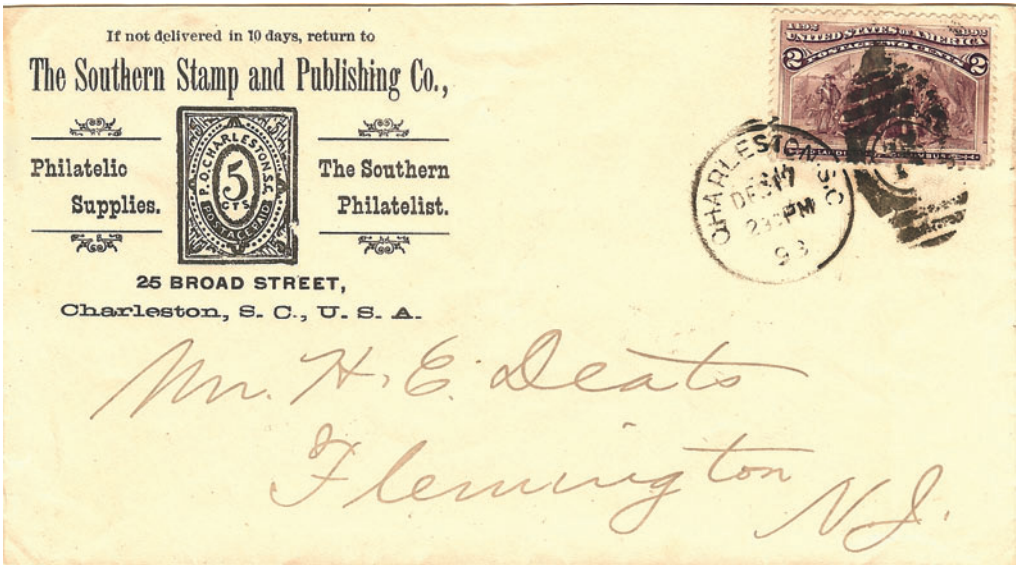 If not delivered in 10 days, return to
The Southern Stamp and Publishing Co.,
Philatelic
Supplies.
P.O. CHARLESTON, S.C.
5
CTS
POSTAGE PAID
The Southern
Philatelist.
25 BROAD STREET,
Charleston, S. C., U. S. A.
1492 1892
UNITED STATES OF AMERICA
POSTAGE TWO CENTS
2 2
CHARLESTON, S.C.
DEC 17
230PM
93
Mr. H. E. Deats
Flemington
N.J.